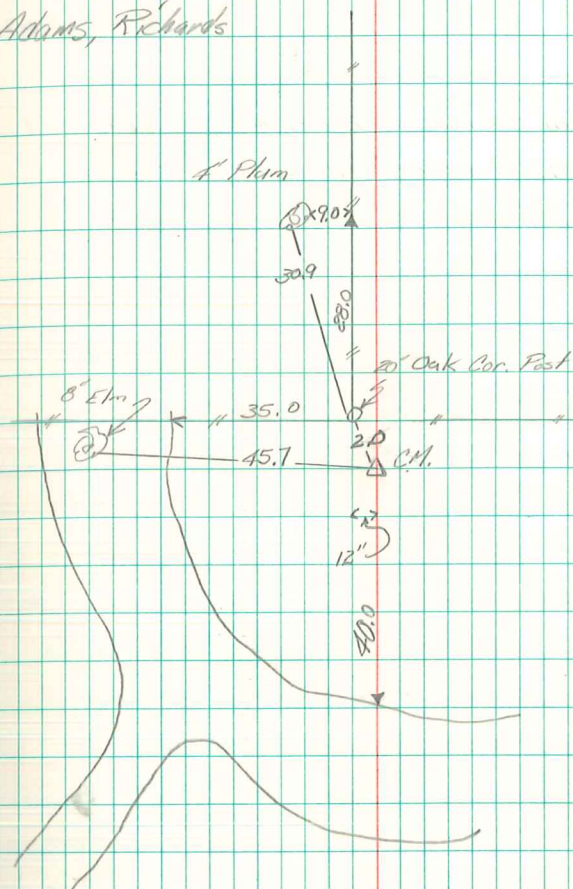 Adams, Richards
4" Plum
9.0
30.9
88.0
20" Oak Cor. Post
8" Elm
35.0
2.0
45.7
C.M.
12"
40.0